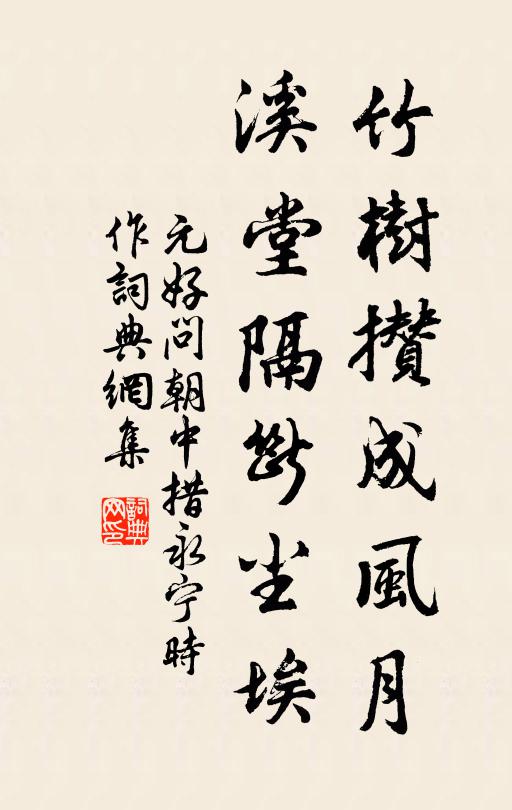 竹樹攢成風月
溪堂隔斷尘埃
元好问朝中措永宁時
作詞典網集
詞典网印